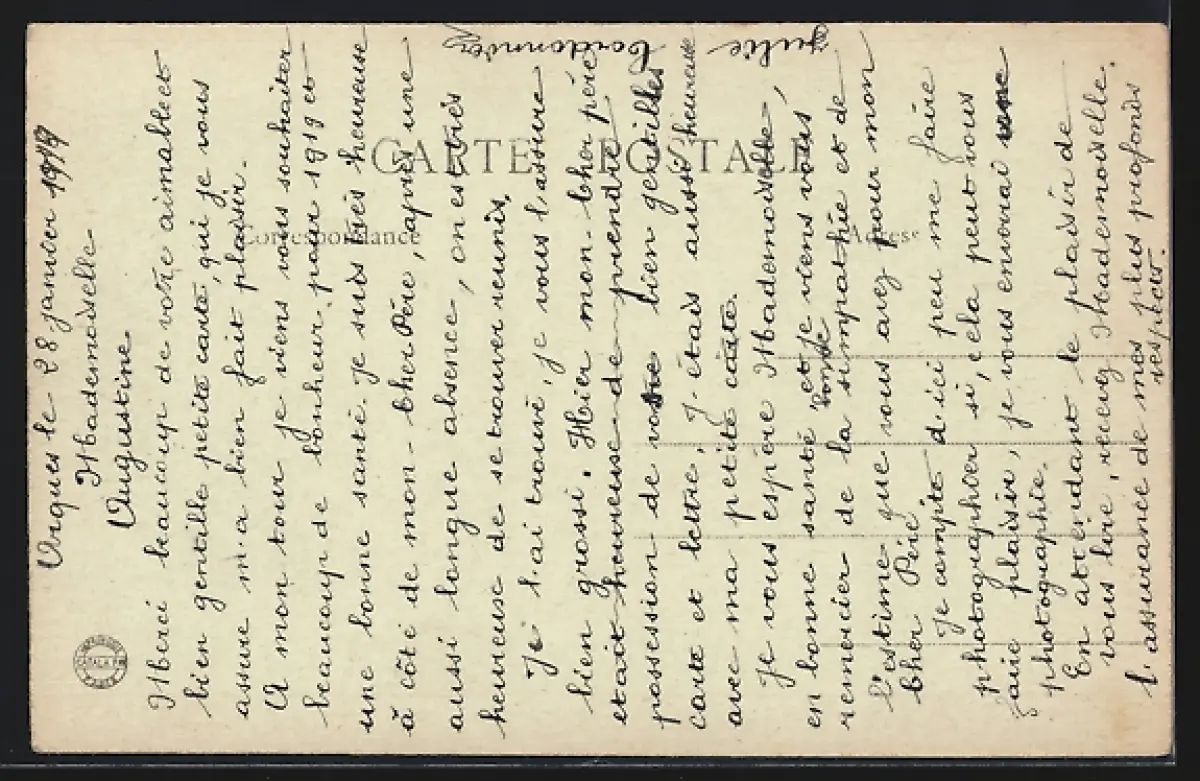 Arques le 28 janvier 1919
Mademoiselle
Augustine
Merci beaucoup de votre aimable et
bien gentille petite carte, qui je vous
assure m'a bien fait plaisir.
A mon tour je viens vous souhaiter
beaucoup de bonheur pour 1919 et
une bonne santé. Je suis très heureuse
à côté de mon cher Père, après une
aussi longue absence, on est très
heureuse de se trouver reunis,
Je l'ai trouvé, je vous l'assure
bien grossi. Hier mon cher père
etait heureuse de prendre
possession de votre bien gentilles
carte et lettre, j'étais aussi heureuse
avec ma petite carte.
Je vous espère Mademoiselle,
en bonne santé et je viens vous,
remercier de la bonne simpathie et de
l'estime que vous avez pour mon
cher Père.
Je compte d'ici peu me faire
photographier si, cela peut vous
faire plaisir, je vous enverai une
photographie.
En attendant le plaisir de
vous lire, recevez Mademoiselle.
l'assurance de mes plus profonds
respects.
Julie Cordonnier
CARTE POSTALE
Correspondance
Adresse